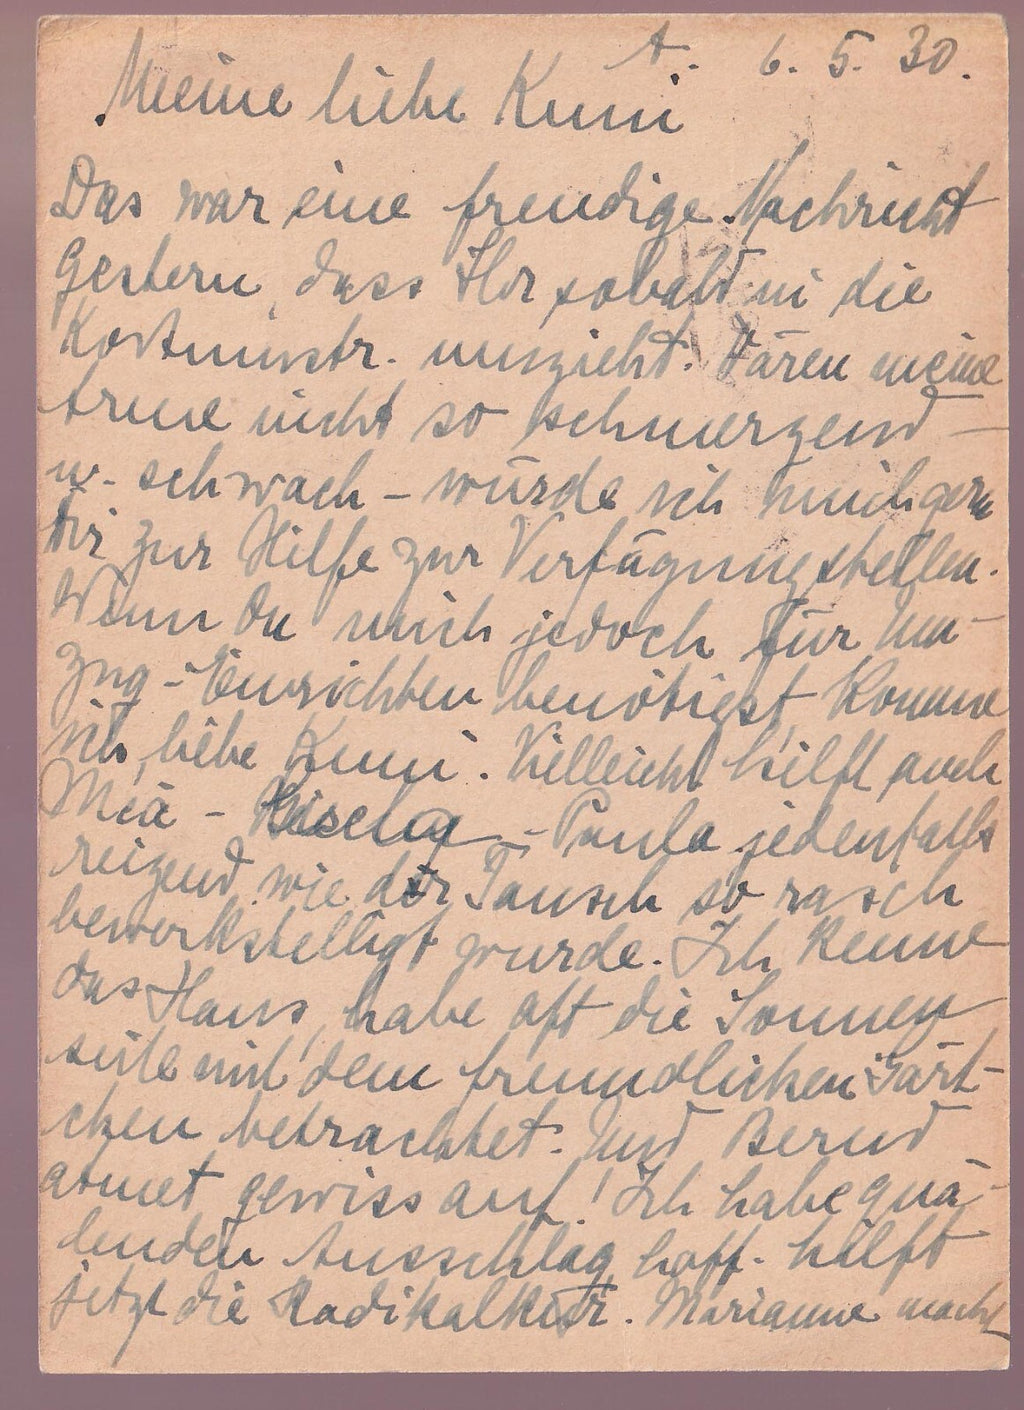 A. 6. 5. 30.
Meine liebe Kuni
Das war eine freudige Nachricht
gestern, dass Ihr sobald in die
umzieht. Wären meine
Arme nicht so schmerzend –
u. schwach – würde ich mich gern
Dir zur Hilfe zur Verfügung stellen.
Wenn Du mich jedoch für Um-
zug-Einrichten benötigst, komme
ich, liebe Kuni. Vielleicht hilft auch
Mia – Gisela – Paula jedenfalls
reizend, wie der Tausch so rasch
bewerkstelligt wurde. Ich kenne
das Haus, habe oft die Sonnen
seite mit dem freundlichen Gärt-
chen betrachtet. Und Bernd
atmet gewiss auf! Ich habe quä-
lenden Ausschlag, hoff. hilft
jetzt die Radikalkur. Marianne macht